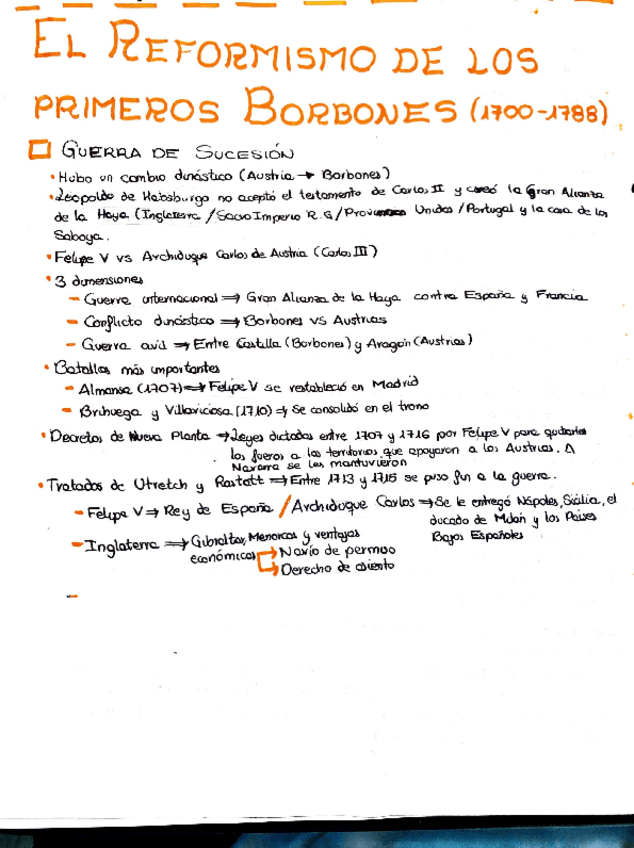 EL REFORMISMO DE LOS
PRIMEROS BORBONES (1700-1788)
GUERRA DE SUCESIÓN
• Hubo un cambio dinástico (Austria → Borbones)
• Leopoldo de Habsburgo no aceptó el testamento de Carlos II y creó la Gran Alianza
de la Haya (Inglaterra / Sacro Imperio R.G / Provincias Unidas / Portugal y la casa de los
Saboya.
• Felipe V vs Archiduque Carlos de Austria (Carlos III)
• 3 dimensiones
– Guerra internacional ⇒ Gran Alianza de la Haya contra España y Francia
– Conflicto dinástico ⇒ Borbones vs Austrias
– Guerra civil ⇒ Entre Castilla (Borbones) y Aragón (Austrias)
• Batallas más importantes
– Almansa (1707) ⇒ Felipe V se restableció en Madrid
– Brihuega y Villaviciosa (1710) ⇒ Se consolidó en el trono
• Decretos de Nueva Planta ⇒ Leyes dictadas entre 1707 y 1716 por Felipe V para quitarles
los fueros a los territorios que apoyaron a los Austrias. A
Navarra se les mantuvieron
• Tratados de Utretch y Rastatt ⇒ Entre 1713 y 1715 se puso fin a la guerra.
– Felipe V ⇒ Rey de España / Archiduque Carlos ⇒ Se le entregó Nápoles, Sicilia, el
ducado de Milán y los Países
Bajos Españoles
– Inglaterra ⇒ Gibraltar, Menorca y ventajas
económicas → Navío de permiso
→ Derecho de asiento
–